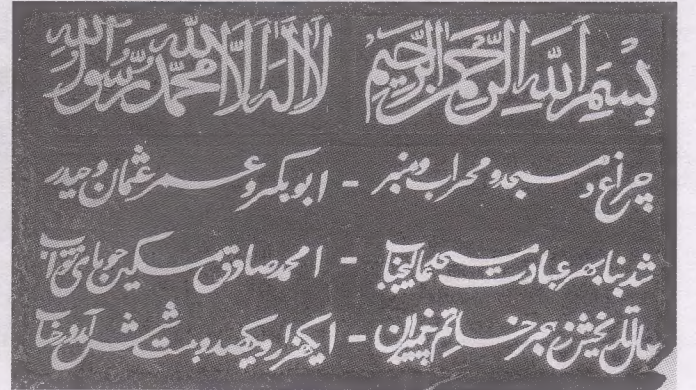 بِسْمِ اللهِ الرَّحْمٰنِ الرَّحِيْمِ لَا اِلٰهَ اِلَّا اللهُ مُحَمَّدٌ رَّسُوْلُ اللهِ
چراغ و مسجد و محراب و منبر - ابوبکر و عمر عثمان و حیدر
شد بنا بهر عبادت مسجد عالیجناب - محمد صادق مسکین جویای ثواب
سال تاریخش ز هجر خاتم پیغمبران - یکهزار و یکصد و بست شش آمد در حساب